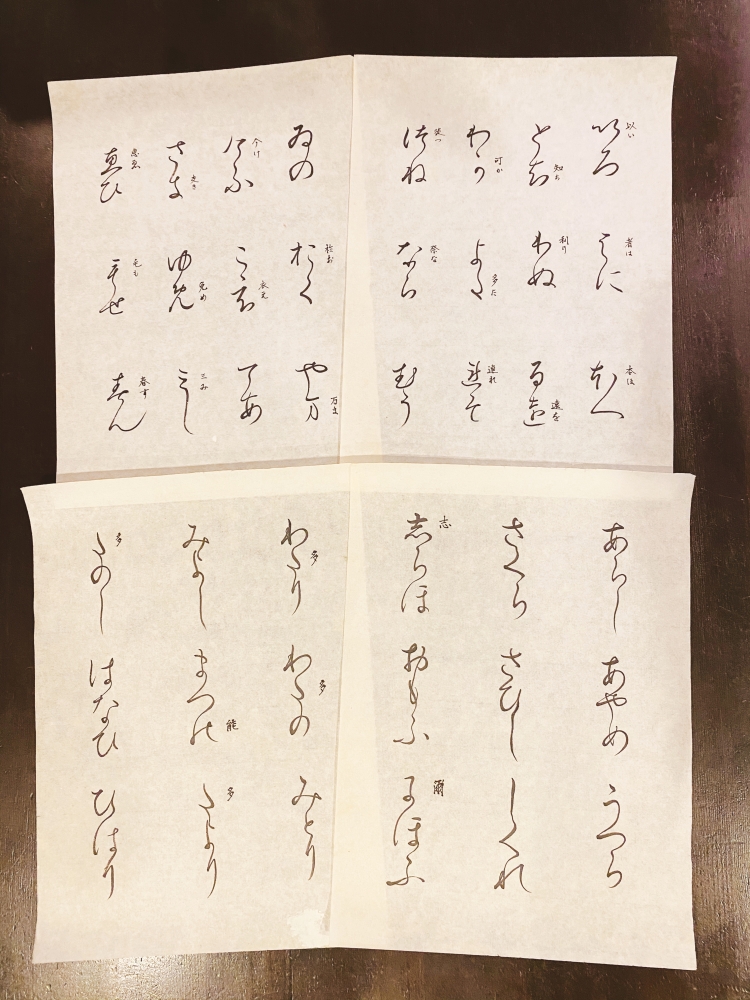 いろ はに ほへ
以い 者は 本ほ
とち りぬ るを
知ち 利り 遠を
わか よた れそ
可か 多た 連れ
つね なら むう
徒つ 奈な
ゐの おく やま
於お 万ま
けふ こえ てあ
介け 衣え
さき ゆめ みし
起き 免め 三み
ゑひ もせ すん
恵ゑ 毛も 春す
あらし あやめ うつら
さくら さひし しくれ
志らほ おもふ にほふ
志 爾
わたり わたの みとり
多 多
みよし まつの たより
能 多
たのし はなひ ひはり
多